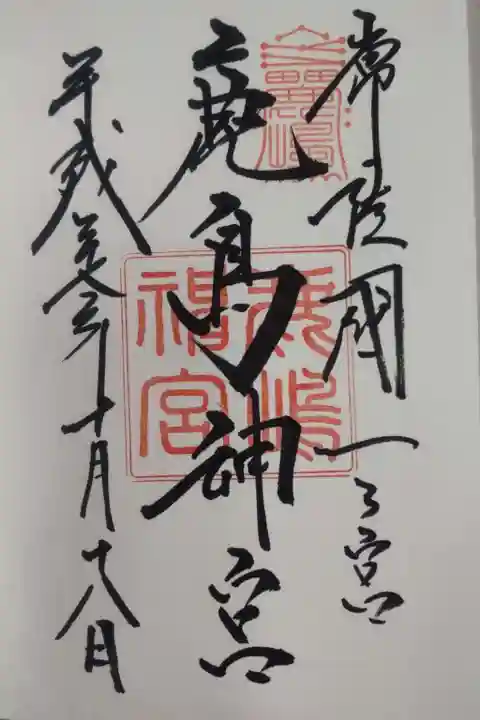 常陸國一之宮
鹿島神宮
平成年十月十八日
鹿嶋
神宮